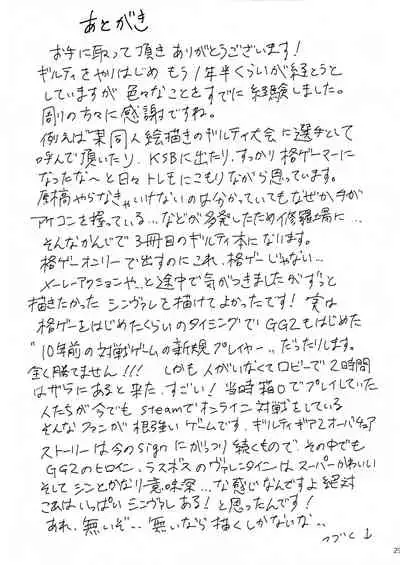 あとがき
お手に取って頂きありがとうございます!
ギルティをやりはじめ もう1年半くらいが経とうと
していますが 色々なことをすでに経験しました。
周りの方々に感謝ですね。
例えば某同人絵描きのギルティ大会に選手として
呼んで頂いたり、KSBに出たり、すっかり格ゲーマーに
なったな〜と日々トレモにこもりながら思っています。
原稿やらなきゃいけないのは分かっていてもなぜか手が
アケコンを握っている…などが多発したため修羅場に…
そんなかんじで3冊目のギルティ本になります。
格ゲーオンリーで出すのにこれ、格ゲーじゃない…
メーレーアクションや…と途中で気がつきましたがずっと
描きたかった シンヴァレを描けてよかったです! 実は
格ゲーをはじめたくらいのタイミングでGG2もはじめた
"10年前の対戦ゲームの新規プレイヤー"だったりします。
全く勝てません!!! しかも人がいなくてロビーで2時間
はザラにあると来た。すごい! 当時箱〇でプレイしていた
人たちが今でもsteamでオンライン対戦をしている
そんなファンが根強いゲームです。ギルティギア2オーバチュア
ストーリーは今のsignにがっつり続くもので、その中でも
GG2のヒロイン、ラスボスのヴァレンタインはスーパーかわいい
そしてシンとかなり意味深…な感じなんですよ絶対
これはいっぱいシンヴァレある!と思ったんです!
あれ、無いぞ…無いなら描くしかないな…
つづく↓
29